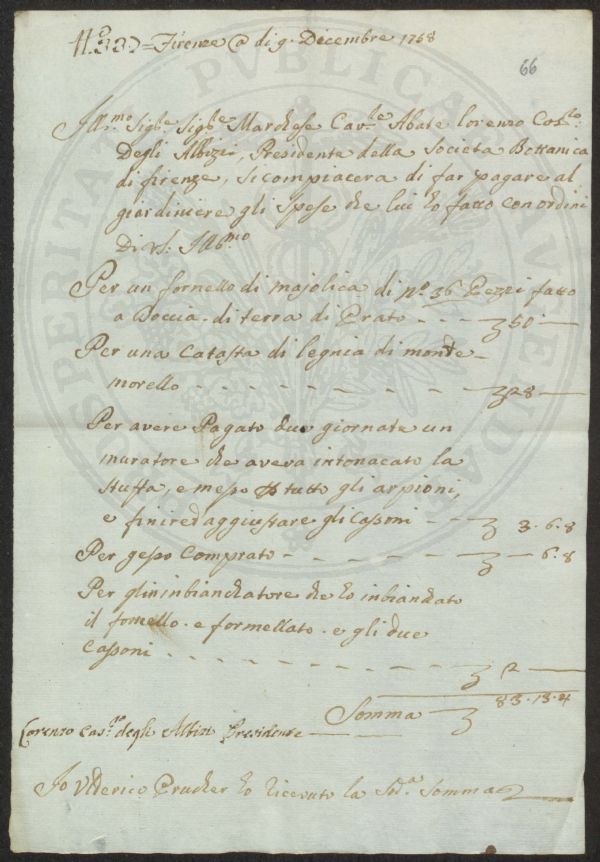 Firenze @ di 9. Decembre 1768
66
Ill:mo Sig:re Sig:re Marchese Cav:re Abate Lorenzo Cos:to
Degli Albizzi, Presidente della Societa Bottanica
di firenze, si compiacera di far pagare al
giardiniere gli spese che lui ho fatto con ordini
Di vs: Ill:mo
Per un fornello di majolica di No. 36 Pezzi fatto
a Doccia. di terra di Prato - - - 50 —
Per una Catasta di legnia di monte
morello - - - - - - - 28 —
Per avere Pagato due giornate un
muratore che aveva intonacato la
stuffa, e messo tutto gli arpioni,
e finire d'aggiustare gli Cassoni - - 3. 6. 8
Per gesso Comprato - - - - - — 6. 8
Per gli inbianchatore che ho inbianchato
il fornello. e formellato. e gli due
Cassoni - - - - - - - 2 —
Somma — 83. 13. 4
Lorenzo Cos:to degli Albizi Presidente
Jo Vlderico Prucker ho ricevuto la Sd:a Somma
PROSPERITATI PVBLICAE